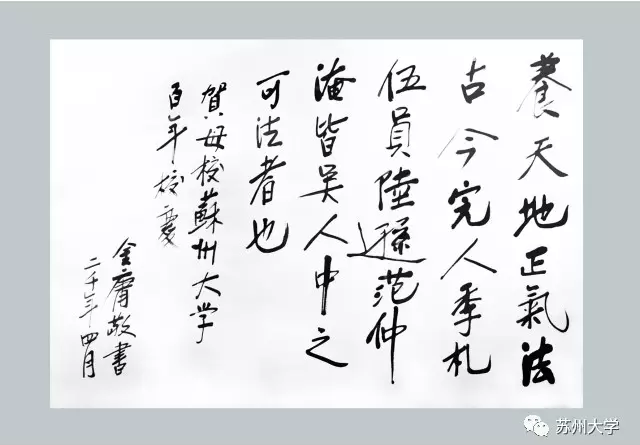 養天地正氣法
古今完人季札
伍員陸遜范仲
淹皆吴人中之
可法者也
賀母校蘇州大学
百年校慶
金庸敬書
二千年四月
苏州大学